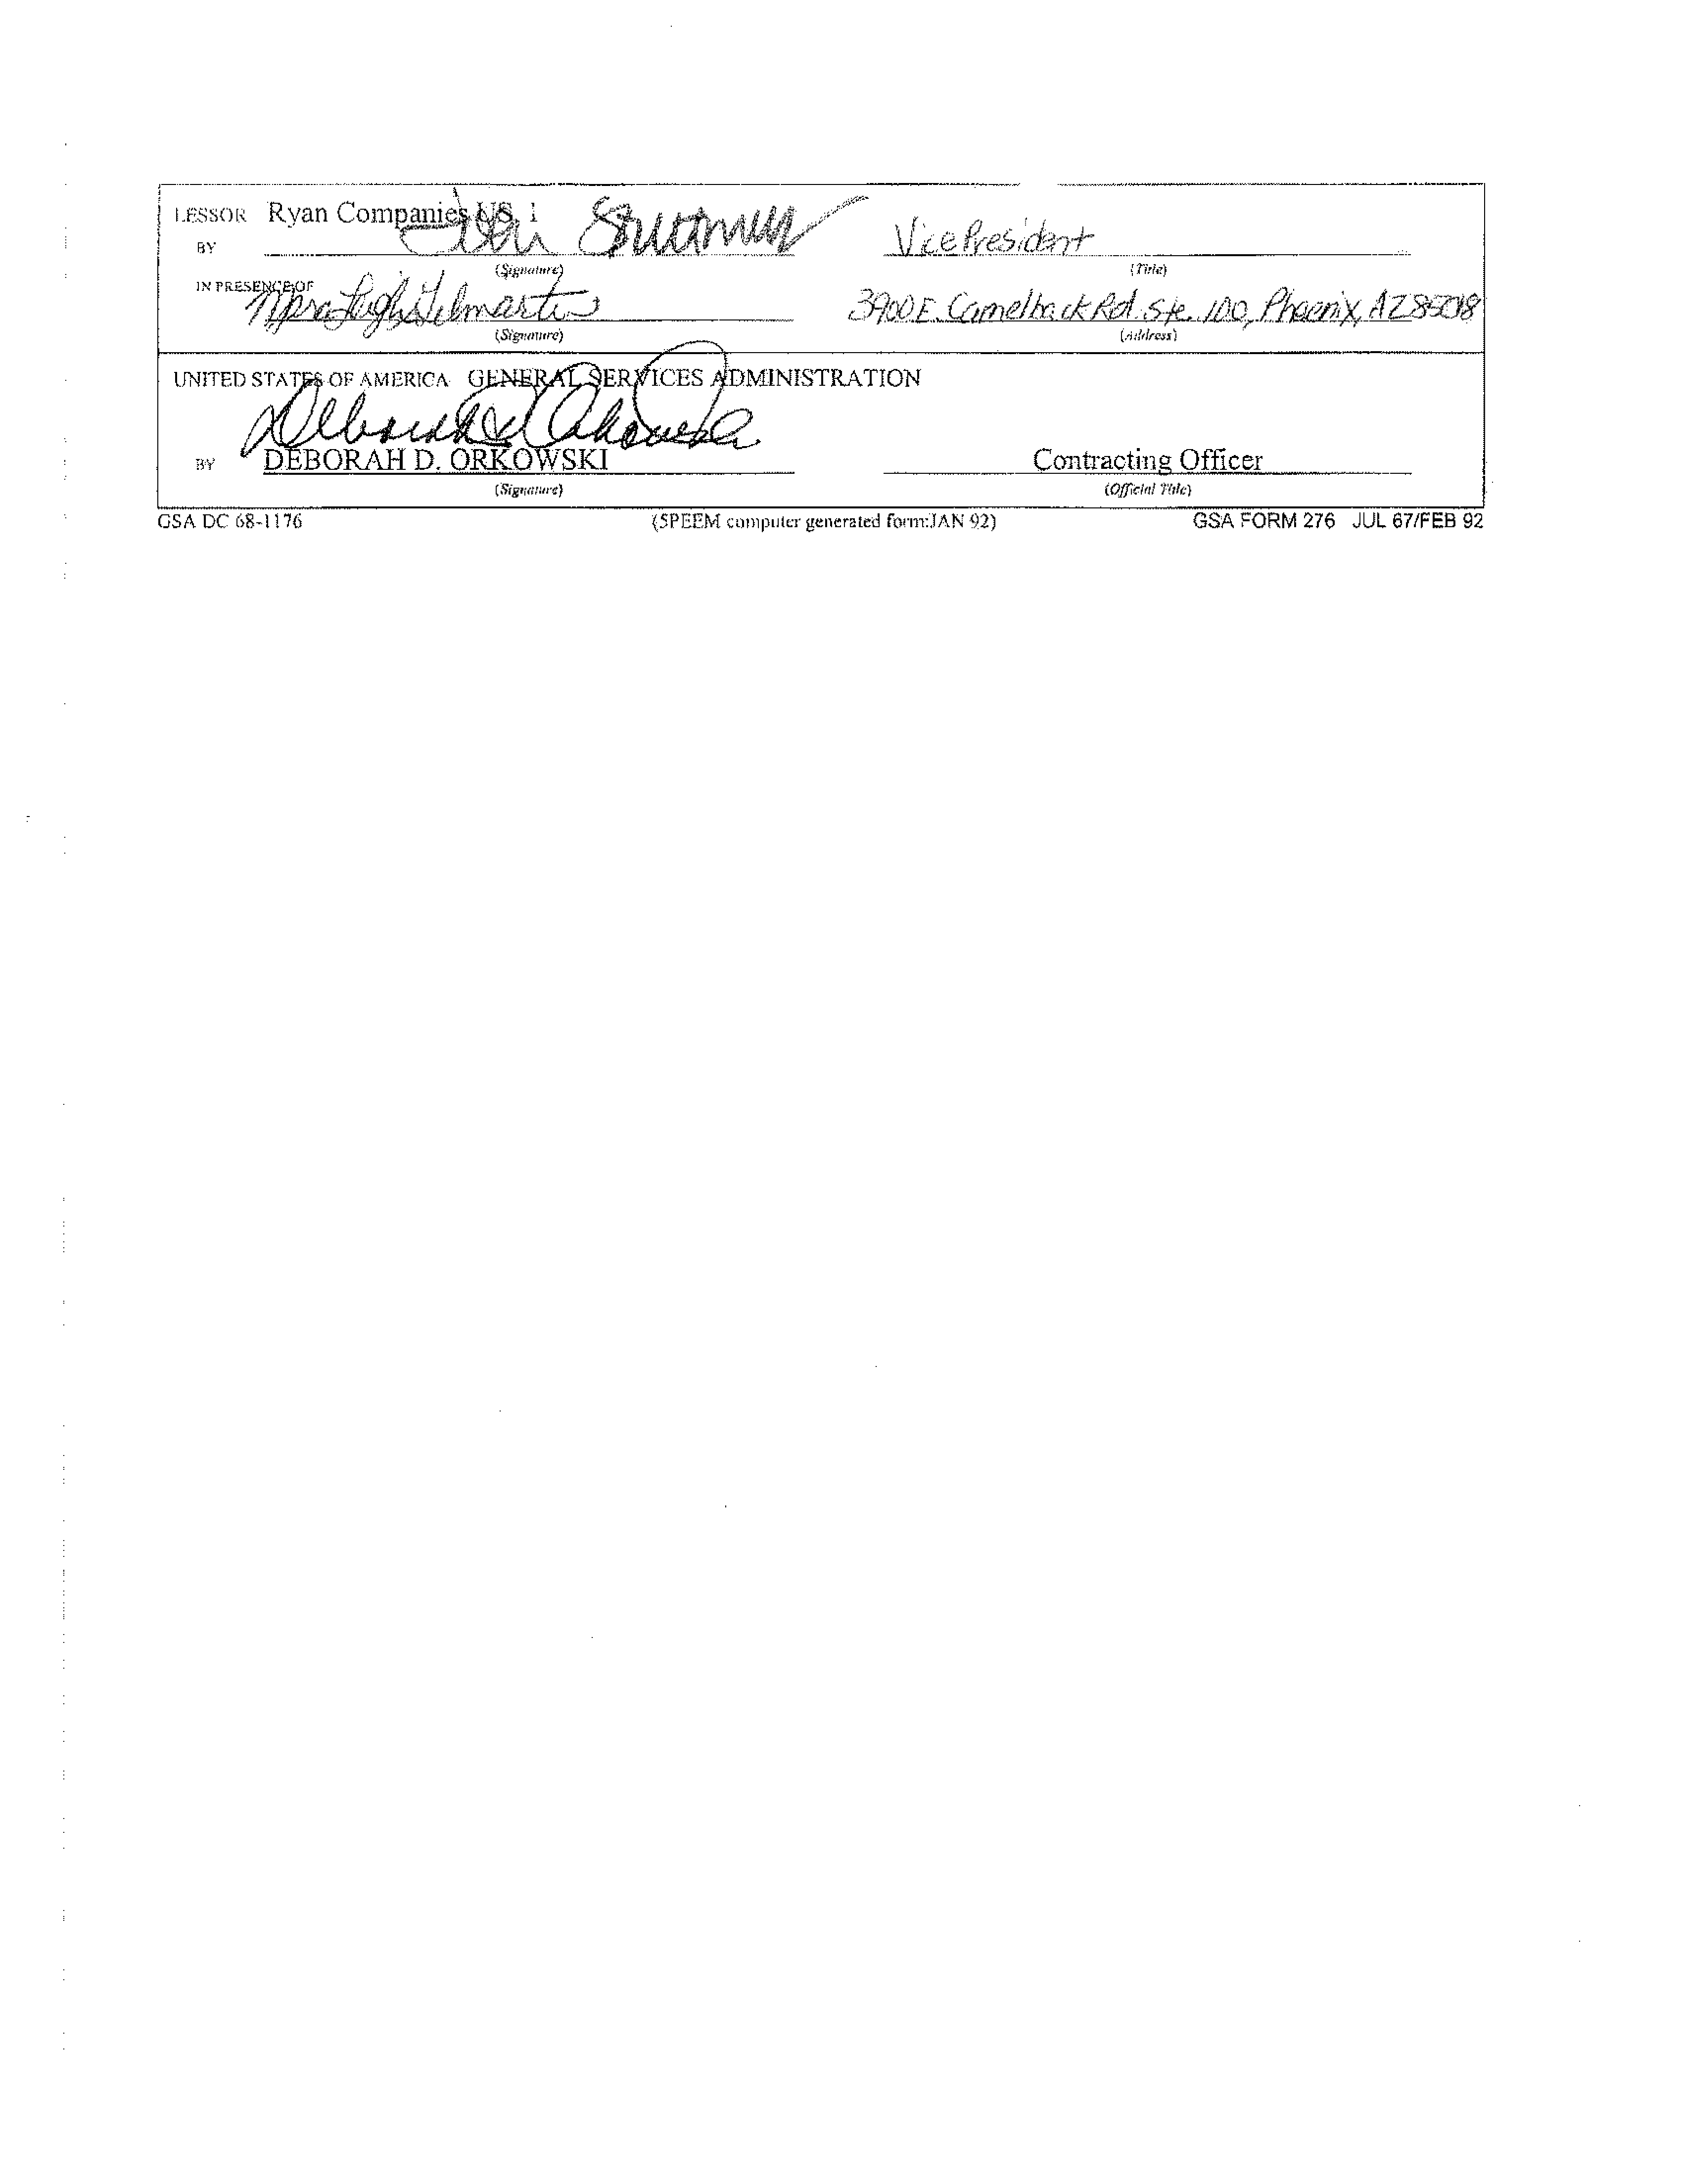 LESSOR Ryan Companies US, I
BY Vice President
(Signature) (Title)
IN PRESENCE OF
3900 E. Camelback Rd. Ste. 100, Phoenix, AZ 85018
(Signature) (Address)
UNITED STATES OF AMERICA GENERAL SERVICES ADMINISTRATION
BY DEBORAH D. ORKOWSKI Contracting Officer
(Signature) (Official Title)
GSA DC 68-1176 (5PEEM computer generated form:JAN 92) GSA FORM 276 JUL 67/FEB 92